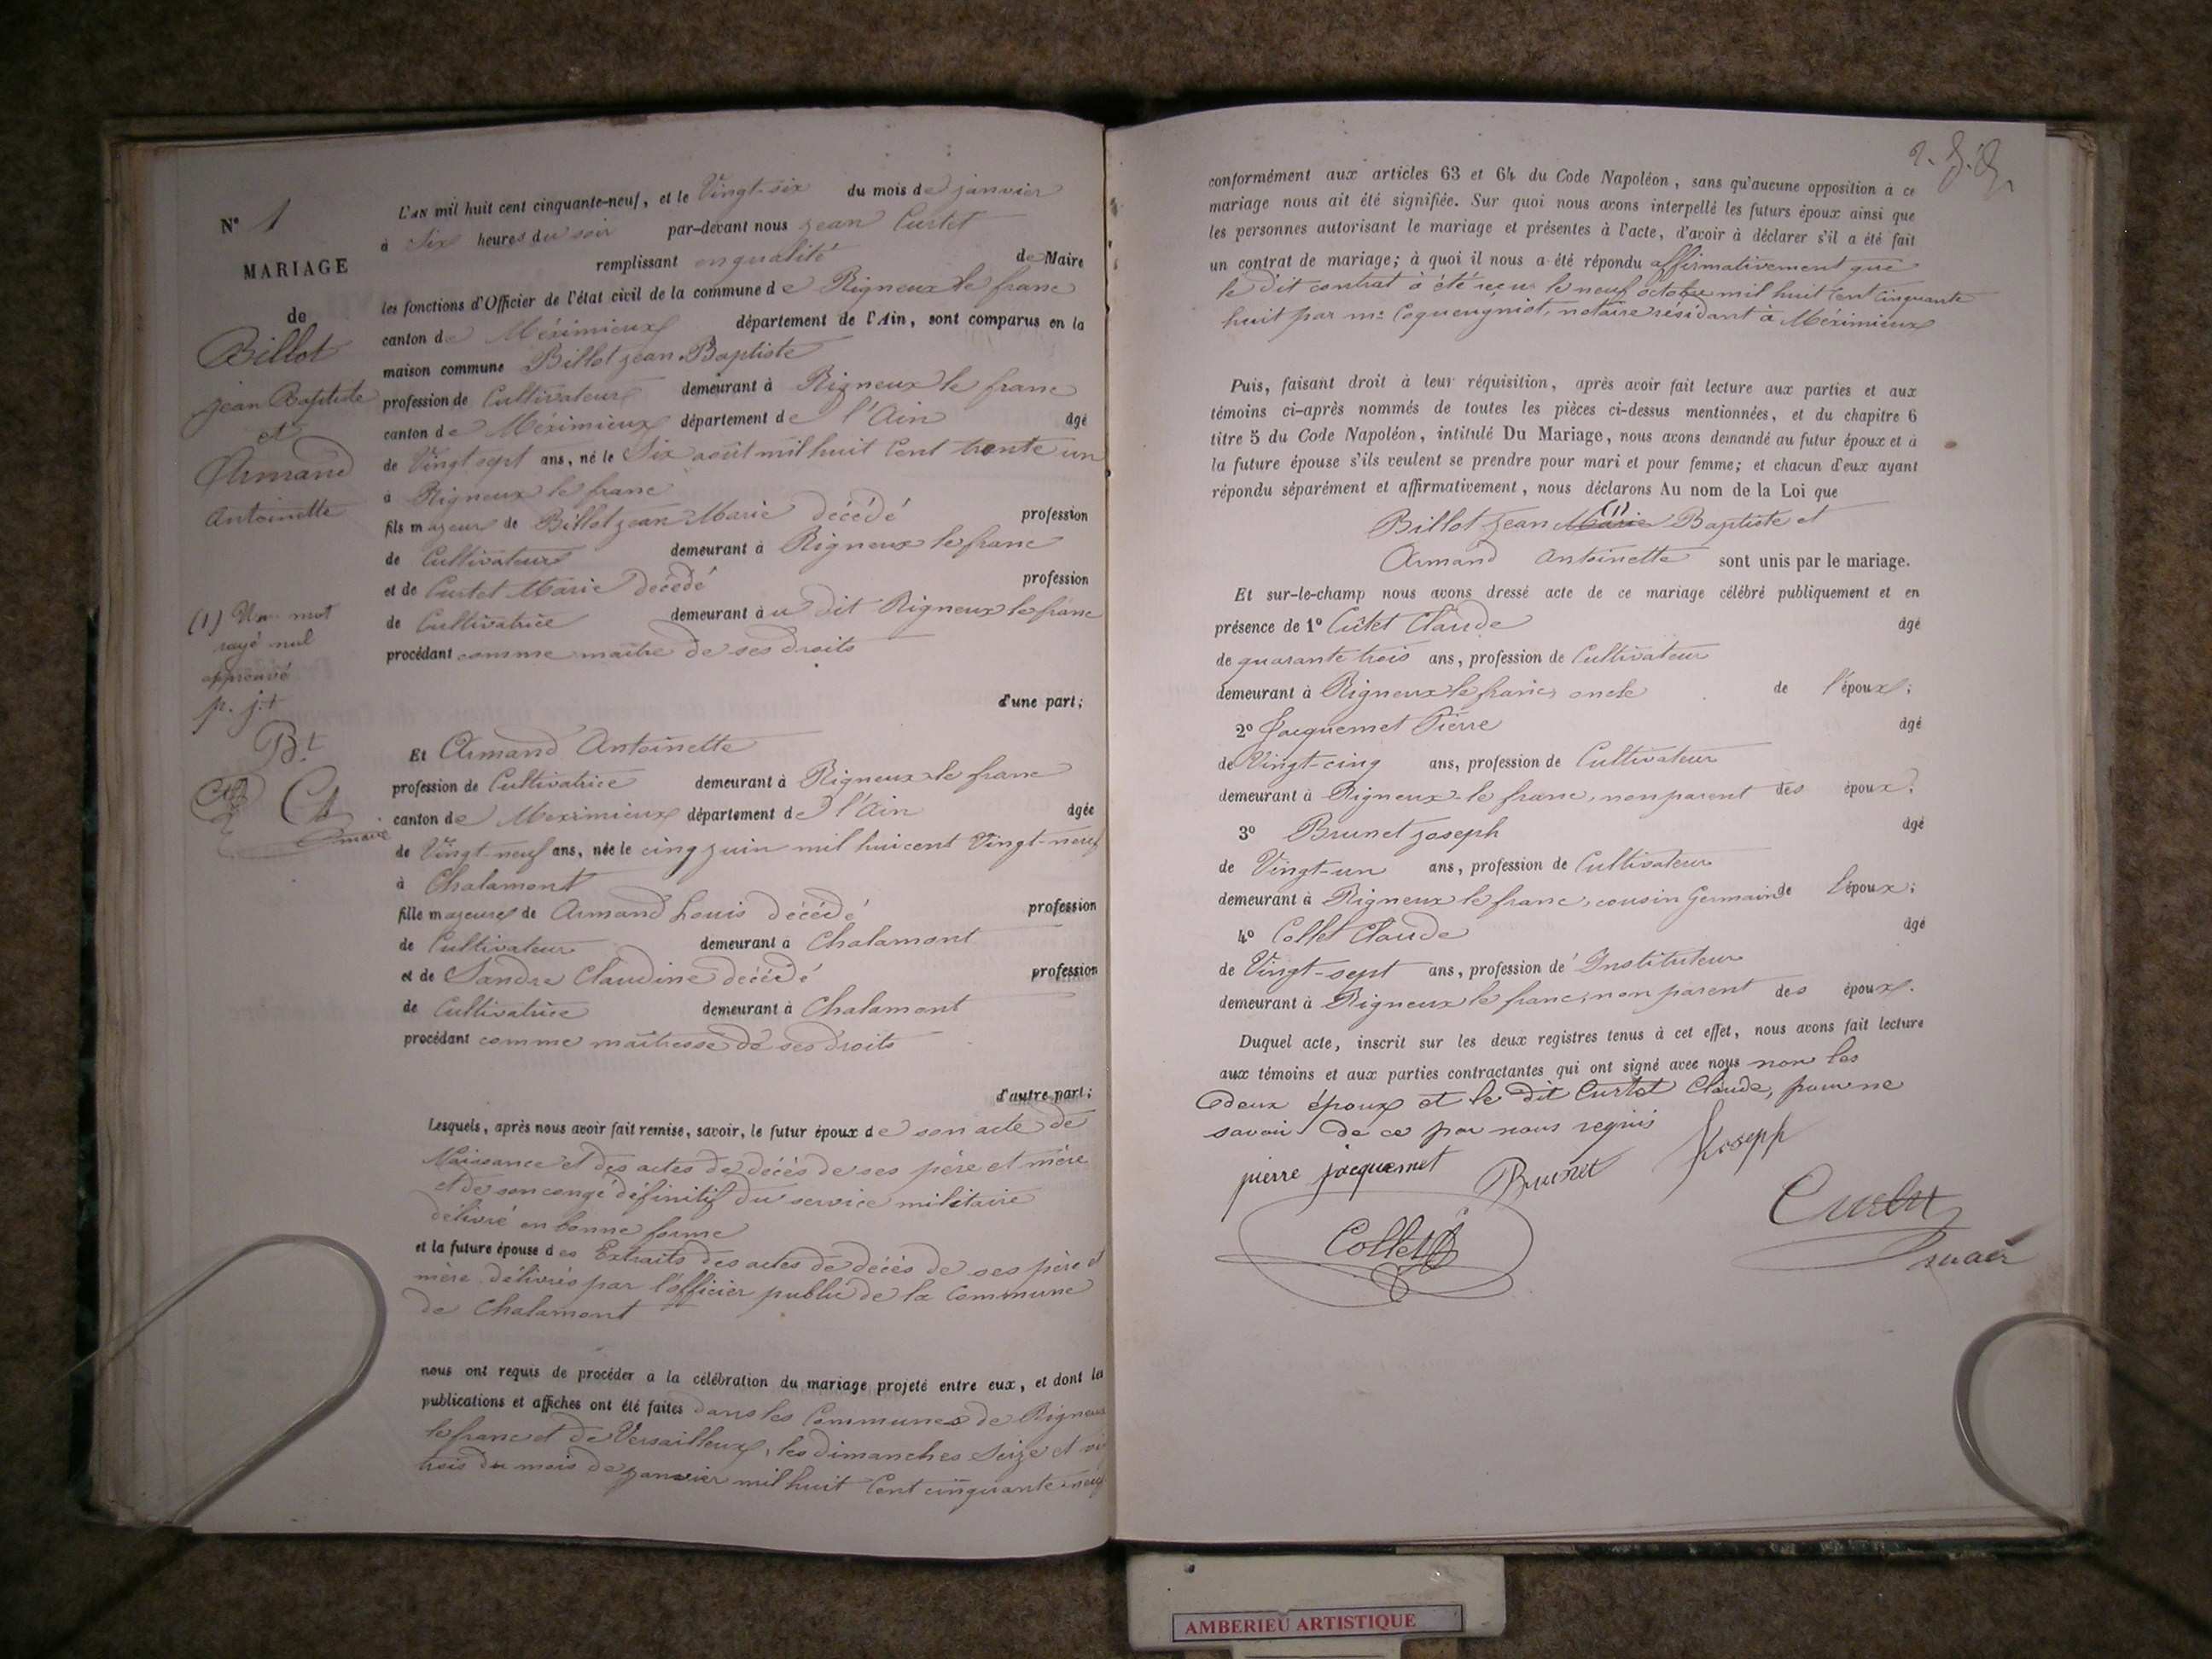 N° 1
MARIAGE
de
Billot
jean Baptiste
et
Armand
Antoinette
(1) Un mot
rayé nul
approuvé
p. j.t
B.t
maire
L'AN mil huit cent cinquante-neuf, et le Vingt-six du mois de janvier
à Six heures du soir par-devant nous jean Curtet
remplissant en qualité de Maire
les fonctions d'Officier de l'état civil de la commune de Rigneux le franc
canton de Méximieux département de l'Ain, sont comparus en la
maison commune Billot jean Baptiste
profession de Cultivateur demeurant à Rigneux le franc
canton de Méximieux département de l'Ain âgé
de Vingt sept ans, né le Six août mil huit Cent trente un
à Rigneux le franc
fils majeur de Billot jean Marie décédé profession
de Cultivateur demeurant à Rigneux le franc
et de Curtet Marie décédé profession
de Cultivatrice demeurant à u dit Rigneux le franc
procédant comme maître de ses droits
d'une part;
Et Armand Antoinette
profession de Cultivatrice demeurant à Rigneux le franc
canton de Meximieux département de l'Ain âgée
de Vingt-neuf ans, née le cinq juin mil huicent Vingt-neuf
à Chalamont
fille majeure de Armand Louis décédé profession
de Cultivateur demeurant à Chalamont
et de Sandre Claudine décédé profession
de Cultivatrice demeurant à Chalamont
procédant comme maîtresse de ses droits
d'autre part;
Lesquels, après nous avoir fait remise, savoir, le futur époux de son acte de
Naissance et des actes de décès de ses père et mère
et de son congé définitif du service militaire
délivré en bonne forme
et la future épouse des Extraits des actes de décès de ses père et
mère délivrés par l'officier public de la Commune
de Chalamont
nous ont requis de procéder à la célébration du mariage projeté entre eux, et dont les
publications et affiches ont été faites dans les Communes de Rigneux
le franc et de Versailleux, les dimanches Seize et
trois du mois de janvier mil huit Cent cinquante neuf
conformément aux articles 63 et 64 du Code Napoléon, sans qu'aucune opposition à ce
mariage nous ait été signifiée. Sur quoi nous avons interpellé les futurs époux ainsi que
les personnes autorisant le mariage et présentes à l'acte, d'avoir à déclarer s'il a été fait
un contrat de mariage; à quoi il nous a été répondu affirmativement que
le dit contrat à été reçu le neuf octobre mil huit Cent cinquante
huit par me Coqueugniot, notaire résidant à Méximieux
Puis, faisant droit à leur réquisition, après avoir fait lecture aux parties et aux
témoins ci-après nommés de toutes les pièces ci-dessus mentionnées, et du chapitre 6
titre 5 du Code Napoléon, intitulé Du Mariage, nous avons demandé au futur époux et à
la future épouse s'ils veulent se prendre pour mari et pour femme; et chacun d'eux ayant
répondu séparément et affirmativement, nous déclarons Au nom de la Loi que
Billot jean Marie (1) Baptiste et
Armand Antoinette sont unis par le mariage.
Et sur-le-champ nous avons dressé acte de ce mariage célébré publiquement et en
présence de 1° Claude âgé
de quarante trois ans, profession de Cultivateur
demeurant à Rigneux le franc, oncle de l'époux;
2° Jacquemet Pierre âgé
de Vingt-cinq ans, profession de Cultivateur
demeurant à Rigneux-le franc, non parent des époux;
3° Brunet joseph âgé
de Vingt-un ans, profession de Cultivateur
demeurant à Rigneux le franc, cousin Germain de l'époux;
4° Collet Claude âgé
de Vingt-sept ans, profession de Instituteur
demeurant à Rigneux le franc, non parent des époux.
Duquel acte, inscrit sur les deux registres tenus à cet effet, nous avons fait lecture
aux témoins et aux parties contractantes qui ont signé avec nous non les
deux époux et le dit Curtet Claude, pour ne
savoir de ce par nous requis
pierre jacquemet Brunet Joseph
Collet Curtet
maire
AMBERIEU ARTISTIQUE